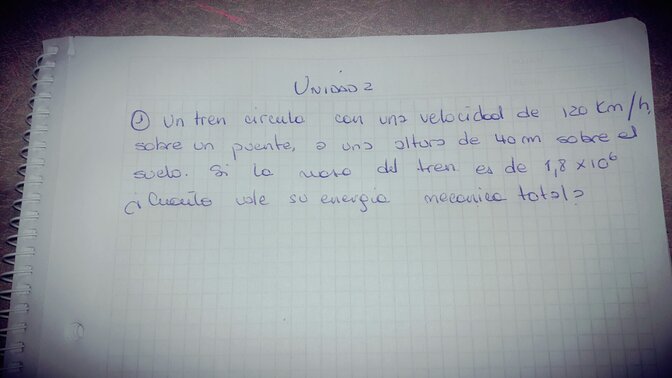 UNIDAD 2
① Un tren circula con una velocidad de 120 Km/h,
sobre un puente, a una altura de 40 m sobre el
suelo. Si la masa del tren es de 1,8 x 10⁶
¿Cuánto vale su energía mecanica total?